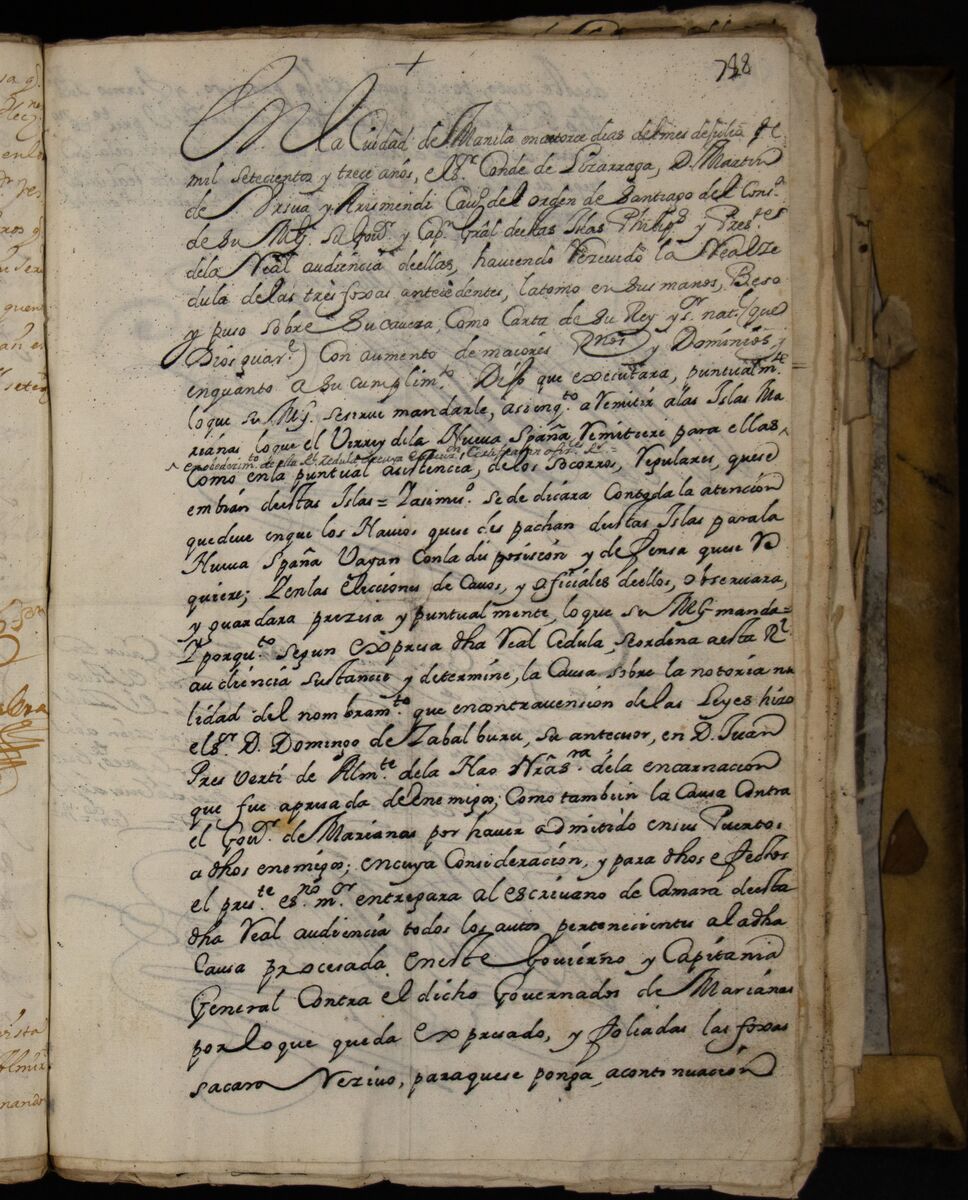 +
788
En la Ciudad de Manila en catorce dias del mes de Julio de
mil setecientos y trece años, el Sr. Conde de Lizarraga, D. Martin
de Vrsua y Arismendi Cauo. del orden de Santiago del Conso.
de Su Mgd. Su Gour. y Capn. Gral de estas Islas Philipas y Preste
de la Real audiencia de ellas, hauiendo Receuido la Real Ze
dula de las tres foxas antecedentes, la tomo en Sus manos, Beso
y puso sobre Su caueza, Como Carta de Su Rey y Sr. natl. (que
Dios guare.) Con aumento de maiores Rnos y Dominios, y
enquanto a Su Cumplimto. Dijo que executara, puntualmte.
lo que su Mgd. se sirue mandarle, asi enqto. a Remitir a las Islas Ma
rianas lo que el Virrey de la Nueua España Remitiere para ellas
en obedecimto. de esta Rl. Zedula
Como en la puntual asistencia, de los Socorros, Regulares, que se
embian de estas Islas = Y asimismo. se dedicara Con toda la atencion
que deue en que los Nauios que se despachan de estas Islas para la
Nueua España Vayan Con la disposicion y defensa que se Re
quiere; Y en las elecciones de Cauos, y oficiales de ellos, obseruara,
y guardara preziza y puntualmente, lo que su Mgd. manda =
Y porquto. segun expresa dha Real Cedula, se ordena a esta Rl.
audiencia sustancie y determine, la Causa sobre la notoria nu
lidad del nombramto. que en contrauension de las Leyes hizo
el Sr. D. Domingo de Zabalburu, su antecesor, en D. Juan
Pres verti de Almte. de la Nao Nra Sra. de la encarnacion
que fue apresada de enemigos; Como tambien la Causa Contra
el Gour. de Marianas por hauer admitido en sus Puertos
a dhos enemigos; en cuya Consideracion, y para dhos efectos
el preste. esno. mor. entregara al escriuano de Camara de esta
dha Real audiencia todos los autos pertenecientes a la dha
Causa procesada en este Gouierno y Capitania
General Contra el dicho Gouernador de Marianas
por lo que queda expresado, y foliadas las foxas
sacara Reziuo, para que se ponga a continuacion